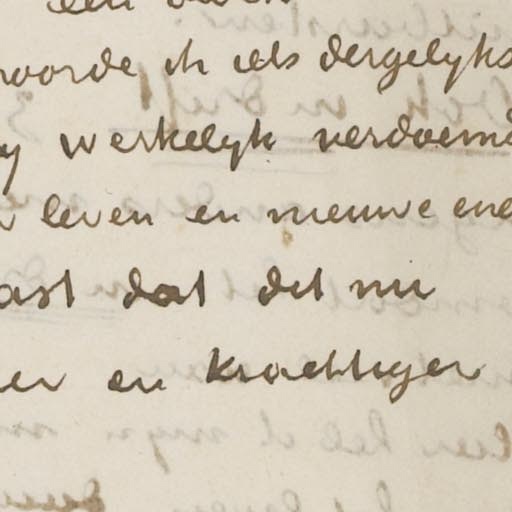 een
hoorde ik iets dergelyks
werkelyk verdoemd
leven en nieuwe ene
ast dat dit nu
er en krachtiger